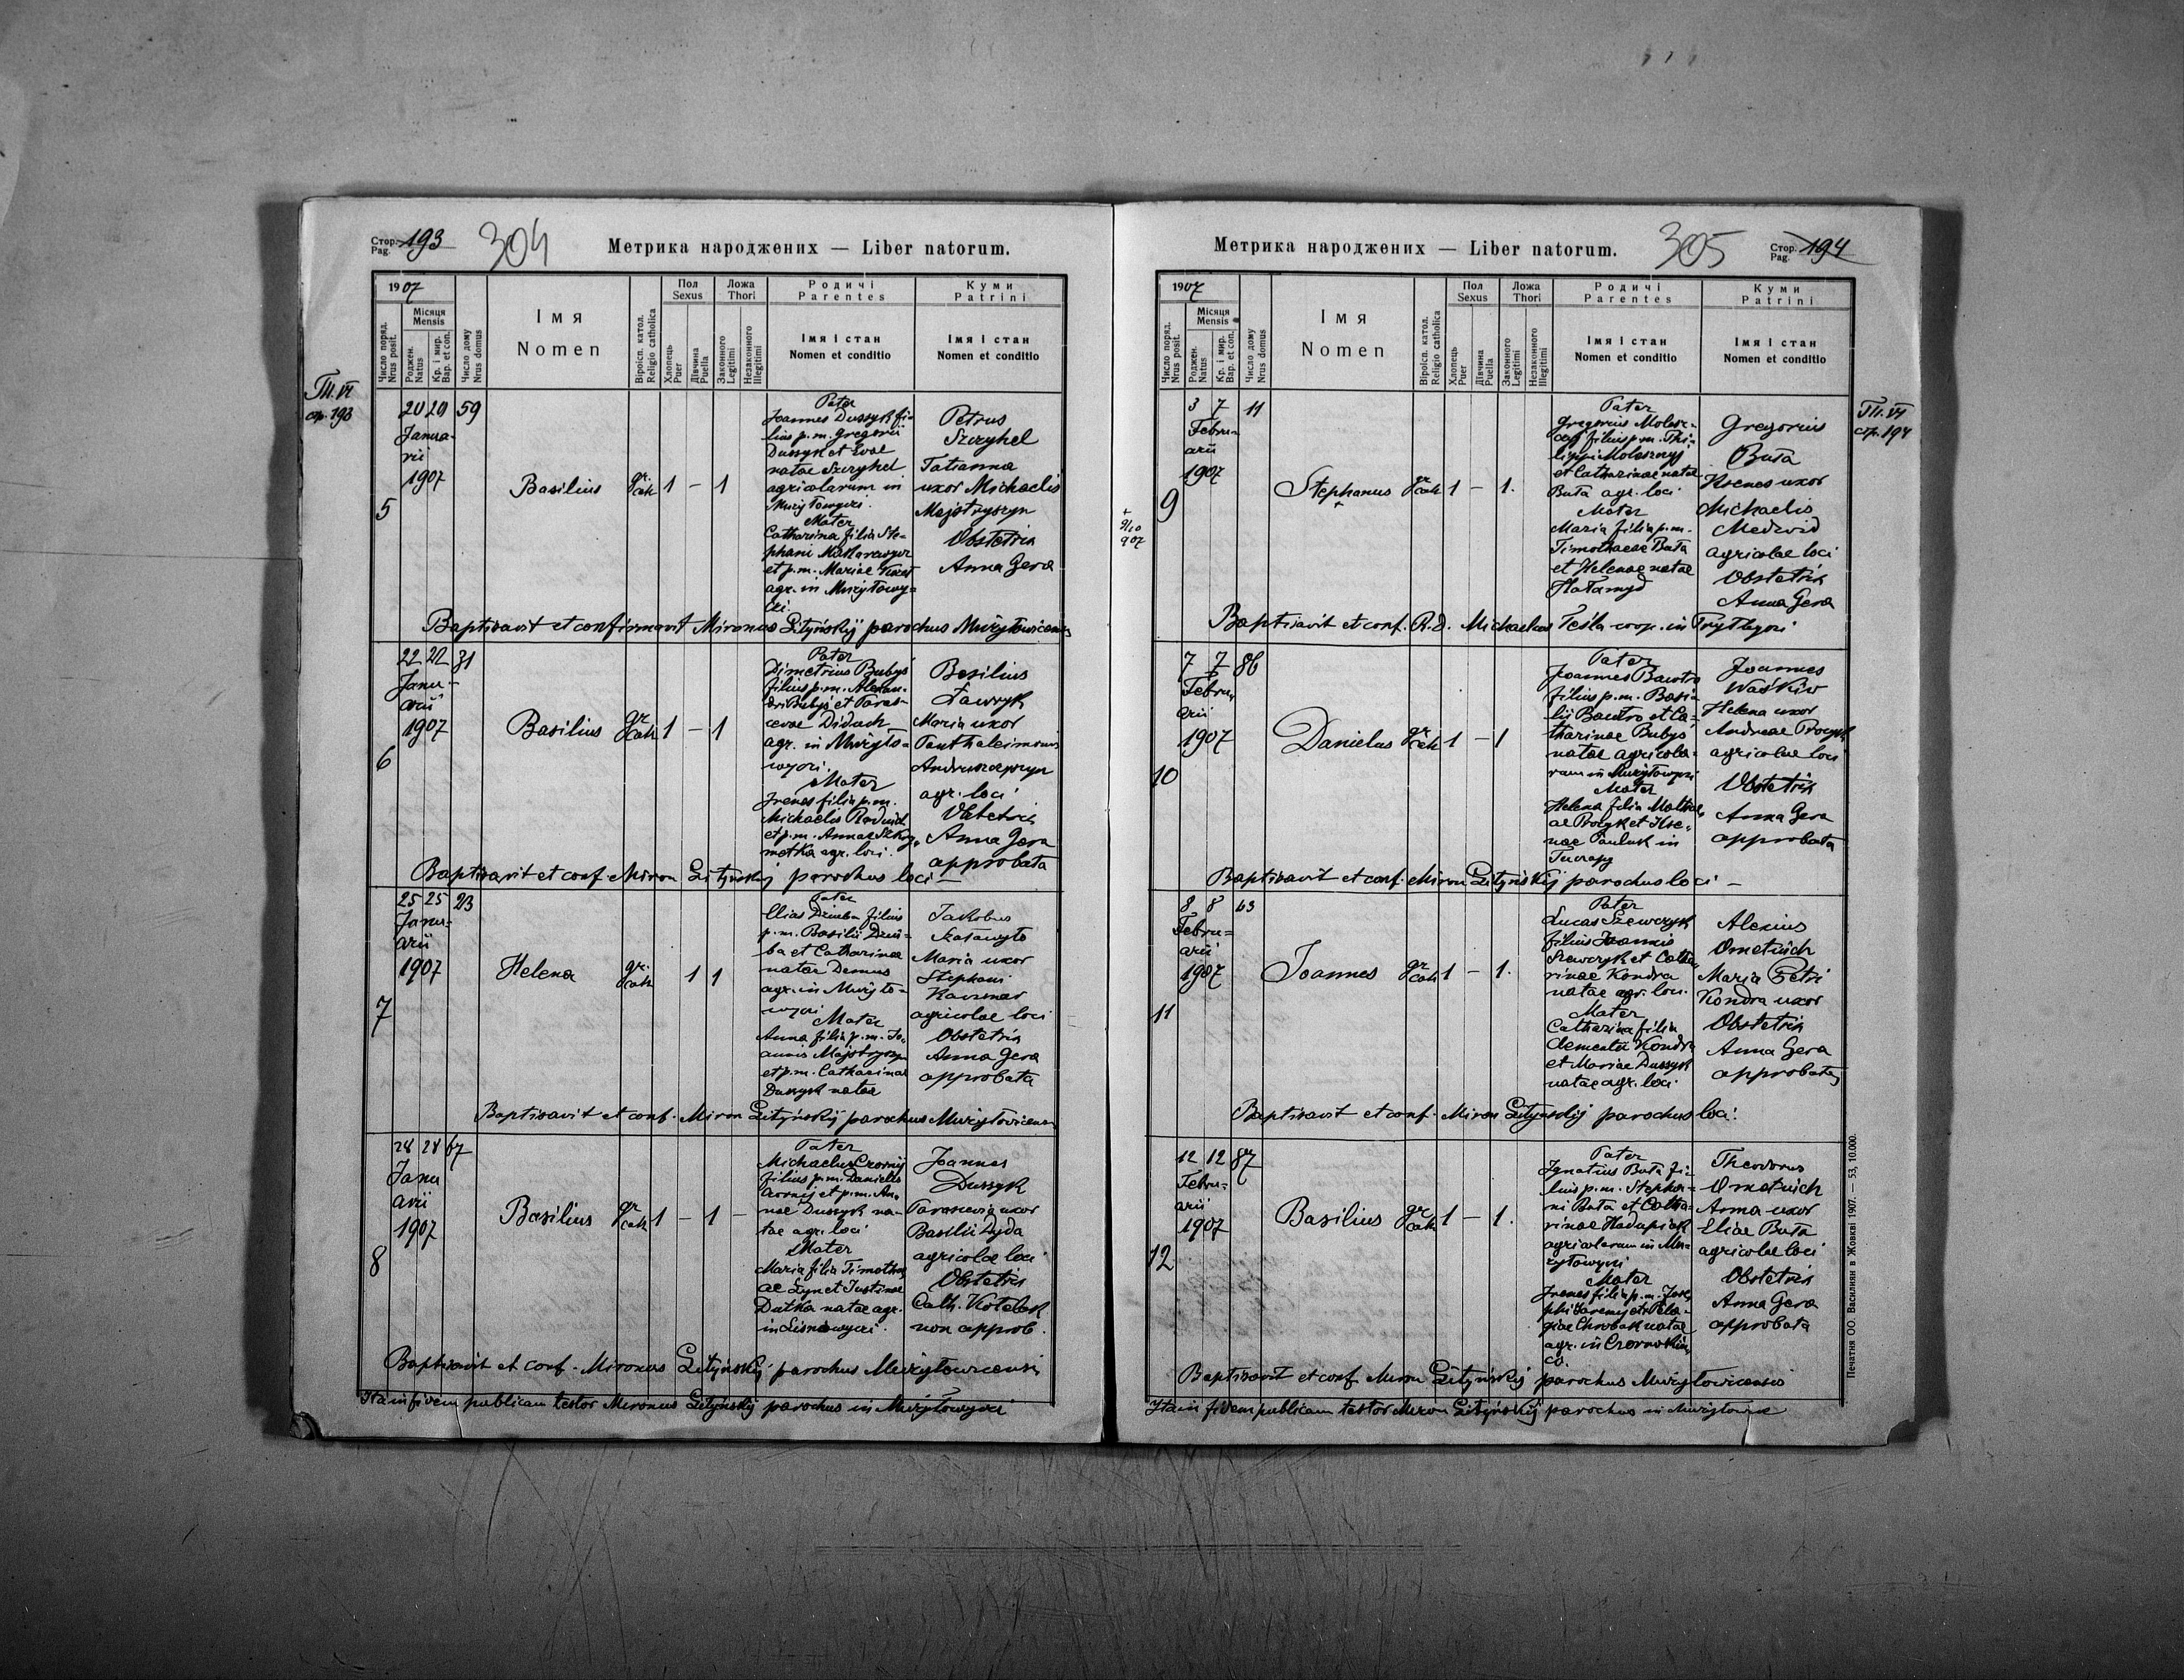 Стор. Pag. 193
304
Метрика народжених — Liber natorum.
1907
Число поряд. Nrus posit.
Місяця Mensis
Роджен. Natus
Кр. і мир. Bap. et con.
Число дому Nrus domus
Імя
Nomen
Віроісп. катол. Religio catholica
Пол Sexus
Хлопець Puer
Дівчина Puella
Ложа Thori
Законного Legitimi
Незаконного Illegitimi
Родичі Parentes
Імя і стан
Nomen et conditio
Куми Patrini
Імя і стан
Nomen et conditio
Тп. VI
стр. 193
5
20 29 59
Janua-
rii
1907
Basilius
gr. cath
1 — 1
Pater
Joannes Dussyk fi-
lius p.m. Gregorii
Dussyk et Evae
natae Szeryhel
agricolarum in
Mater
Catharina filia Ste-
phani
et p.m. Mariae
agr. in
Petrus
Szeryhel
Tatianna
uxor Michaelis
Majstryszyn
Obstetrix
Anna Gera
Baptisavit et confirmavit Mironus Lityńskij parochus
6
22 22 31
Janu-
arii
1907
Basilius
gr. cath
1 — 1
Pater
Dimetrius Bubys
filius p.m. Alexan-
dri Bubys et Paras-
cevae Diduch
agr. in
Mater
Irenes filia p.m.
Michaelis
et p.m. Annae
agr. loci.
Basilius
Ławryk
Maria uxor
Panthaleimonis
agr. loci
Obstetrix
Anna Gera
approbata
Baptisavit et conf. Miron Lityńskij parochus loci —
7
25 25 23
Janu-
arii
1907
Helena
gr. cath
1 1
Pater
Elias Dziuba filius
p.m. Basilii Dziu-
ba et Catharinae
natae Demus
agr. in
Mater
Anna filia p.m. Jo-
annis Majstryszyn
et p.m. Catharinae
Dussyk natae
Jakobus
Maria uxor
Stephani
agricolae loci
Obstetrix
Anna Gera
approbata
Baptisavit et conf. Miron Lityńskij parochus
8
28 28 67
Janu
arii
1907
Basilius
gr. cath
1 — 1 —
Pater
Michaelus Czornij
filius p.m. Danielis
Czornij et p.m. An-
nae Dussyk na-
tae agr. loci
Mater
Maria filia Timothe
ae Łyn et Justinae
Dutka natae agr.
in
Joannes
Dussyk
Parascevia uxor
Basilii Dyda
agricolae loci
Obstetrix
Cath.
non approb.
Baptisavit et conf. Mironus Lityńskij parochus
Ita in fidem publicam testor Mironus Lityńskij parochus in
Метрика народжених — Liber natorum.
305
Стор. Pag. 194
1907
Число поряд. Nrus posit.
Місяця Mensis
Роджен. Natus
Кр. і мир. Bap. et con.
Число дому Nrus domus
Імя
Nomen
Віроісп. катол. Religio catholica
Пол Sexus
Хлопець Puer
Дівчина Puella
Ложа Thori
Законного Legitimi
Незаконного Illegitimi
Родичі Parentes
Імя і стан
Nomen et conditio
Куми Patrini
Імя і стан
Nomen et conditio
Тп. VI
стр. 194
9
3 7 11
Febru-
arii
1907
Stephanus
+
gr. cath
1 — 1.
Pater
Gregorius
filius p.m. Phi-
lippi
et Catharinae natae
Buła agr. loci
Mater
Maria filia p.m.
Timotheae Buła
et Helenae natae
Gregorius
Buła
Irenes uxor
Michaelis
Medwid
agricolae loci
Obstetrix
Anna Gera
Baptisavit et conf. R.D. Michaelus Teśla coop. in
10
7 7 86
Febru-
arii
1907
Danielus
gr. cath
1 — 1
Pater
Joannes Bawtro
filius p.m. Basi-
lii Bawtro et Ca-
tharinae Bubys
natae agricola-
rum in
Mater
Helena filia
et
nae Pauluk in
Joannes
Waśkiw
Helena uxor
Andreae Procyk
agricolae loci
Obstetrix
Anna Gera
approbata
Baptisavit et conf. Miron Lityńskij parochus loci —
11
8 8 63
Febru-
arii
1907
Joannes
gr. cath
1 — 1.
Pater
Lucas Szewczyk
filius Joannis
Szewczyk et Catha-
rinae Kondra
natae agr. loci.
Mater
Catharina filia
Clementii Kondra
et Mariae Dussyk
natae agr. loci.
Alexius
Ometiuch
Maria Petri
Kondra uxor
Obstetrix
Anna Gera
approbata
Baptisavit et conf. Miron Lityńskij parochus loci.
12
12 12 87
Febru-
arii
1907
Basilius
gr. cath
1 — 1.
Pater
Ignatius Buła fi-
lius p.m. Stepha-
ni Buła et Catha-
rinae
agricolarum in
Mater
Irenes filia p.m. Jose
phi et Pela-
giae natae
agr. in
Theodorus
Ometiuch
Anna uxor
Eliae Buła
agricolae loci
Obstetrix
Anna Gera
approbata
Baptisavit et conf. Miron Lityńskij parochus
Ita in fidem publicam testor Miron Lityńskij parochus in
Печатня ОО. Василиян в Жовкві 1907. — 53, 10.000.